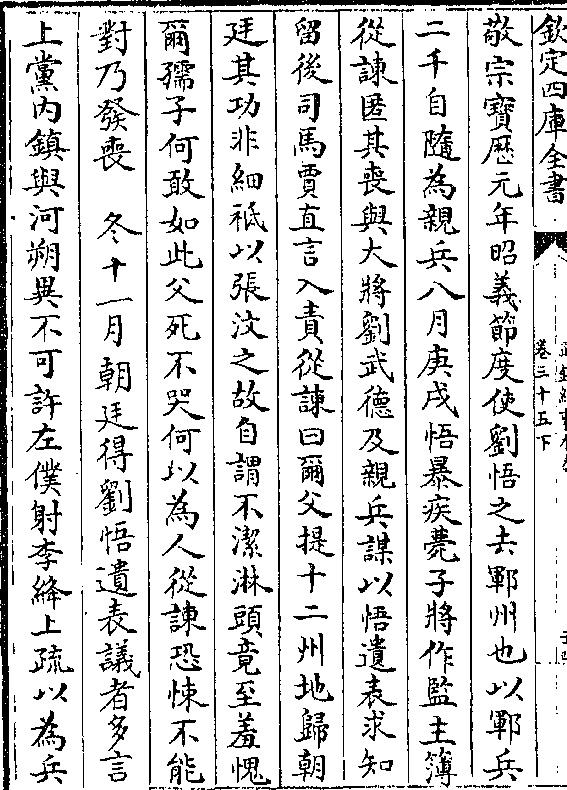 欽定四庫全書
卷三十五下
敬宗寶厯元年昭義節度使劉悟之去鄆州也以鄆兵
二千自隨為親兵八月庚戌悟暴疾薨子將作監主簿
從諫匿其喪與大將劉武德及親兵謀以悟遺表求知
留後司馬賈直言入責從諫曰爾父提十二州地歸朝
廷其功非細秪以張汶之故自謂不潔淋頭竟至羞愧
爾孺子何敢如此父死不哭何以為人從諫恐悚不能
對乃發喪　冬十一月朝廷得劉悟遺表議者多言
上黨内鎮與河朔異不可許左僕射李絳上疏以為兵